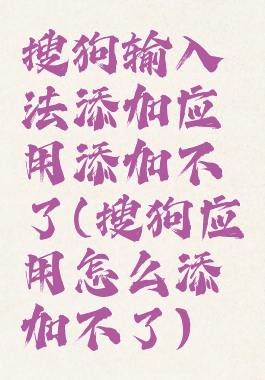 搜狗输入
法添加应
用添加不
了(搜狗应
用怎么添
加不了)